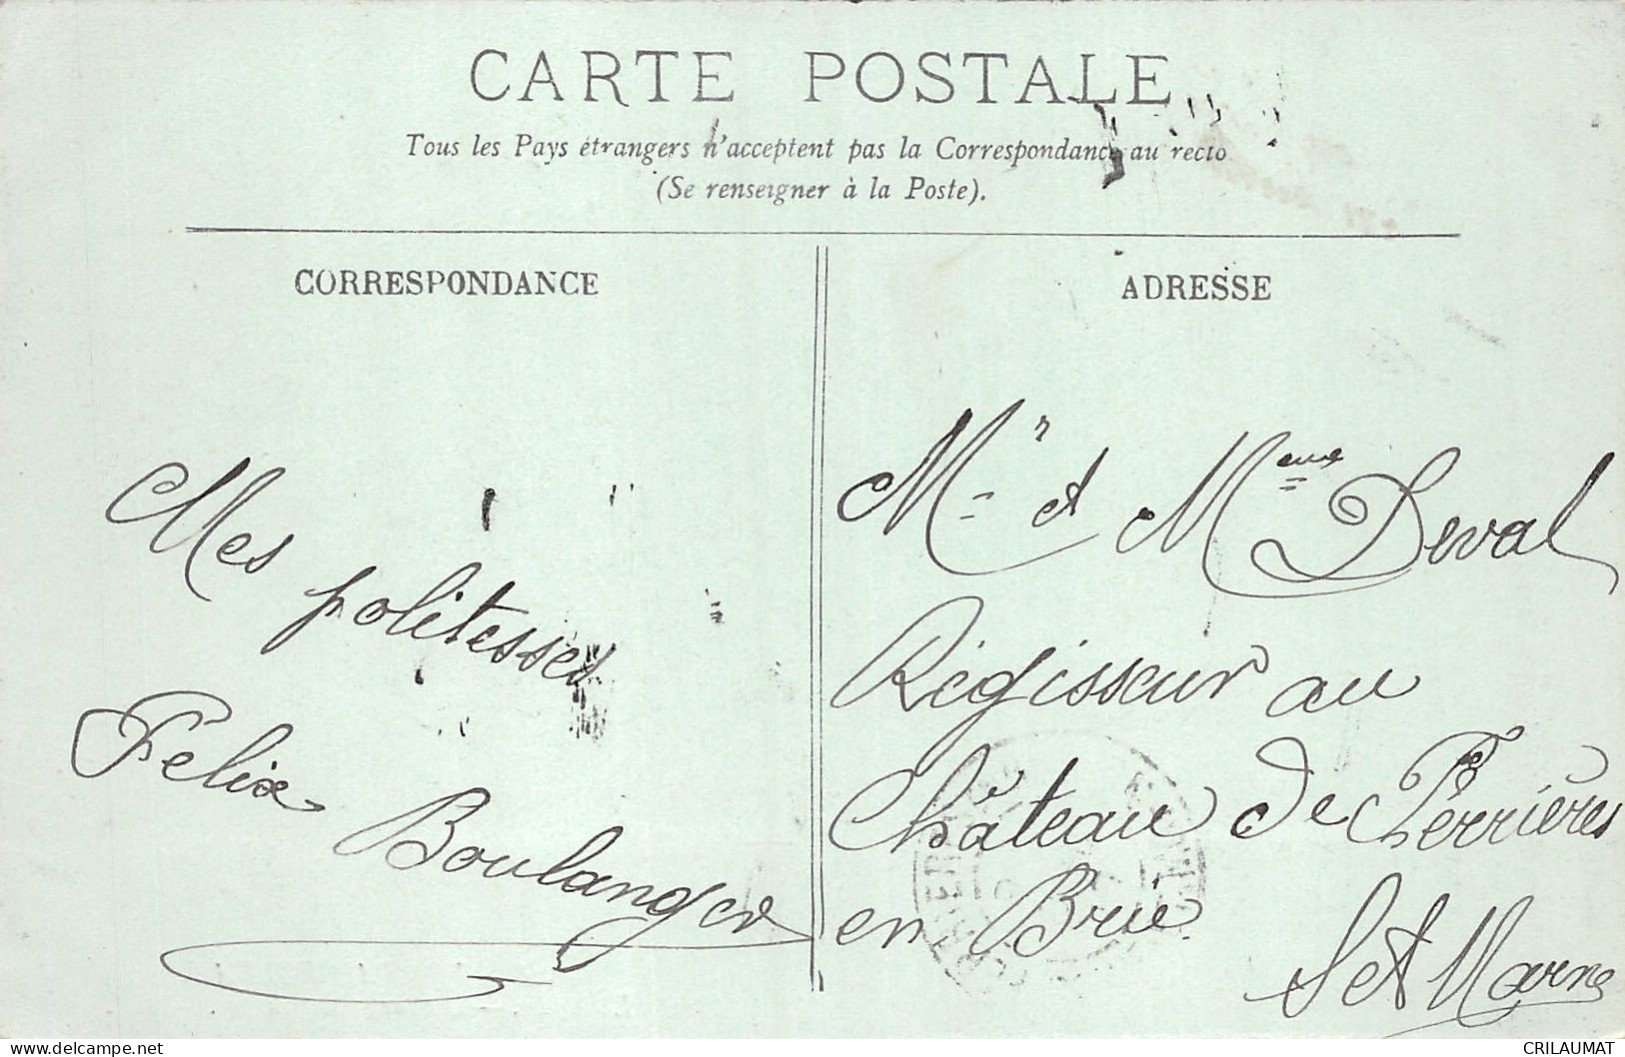 CARTE POSTALE
Tous les Pays étrangers n'acceptent pas la Correspondance au recto
(Se renseigner à la Poste).
CORRESPONDANCE
Mes politesses
Félix Boulanger
ADRESSE
Mr et Mme Deval
Régisseur au
Château de Ferrières
en Brie
S et Marne
CRILAUMAT